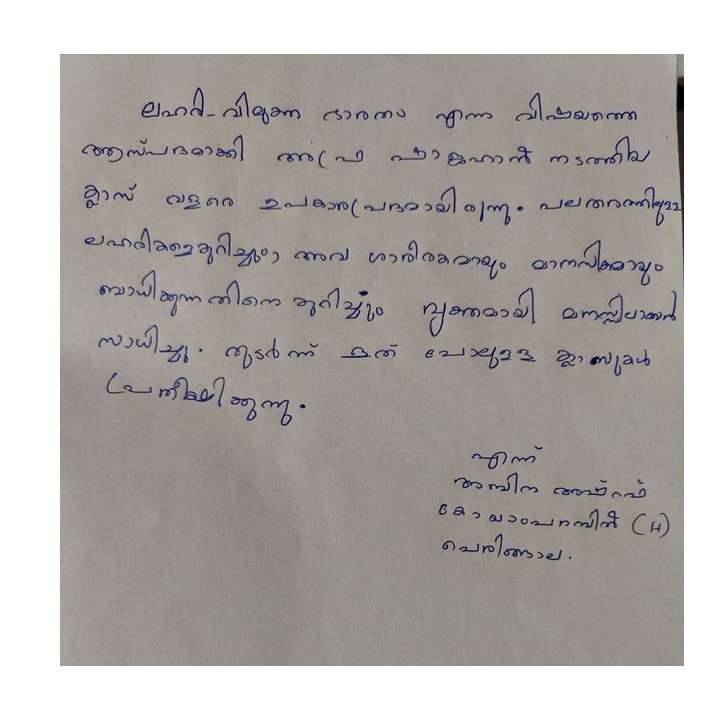 ലഹരി-വിമുക്ത ഭാരതം എന്ന വിഷയത്തെ
ആസ്പദമാക്കി ഷാജഹാൻ നടത്തിയ
ക്ലാസ് വളരെ ഉപകാരപ്രദമായിരുന്നു. പലതരത്തിലുള്ള
ലഹരികളെകുറിച്ചും, അവ ശാരീരകമായും മാനസികമായും
ബാധിക്കുന്നതിനെ കുറിച്ചും വ്യക്തമായി മനസ്സിലാക്കാൻ
സാധിച്ചു. തുടർന്ന് ഇത് പോലുള്ള ക്ലാസുകൾ
പ്രതീക്ഷിക്കുന്നു.
എന്ന്
അഷ്റഫ്
(H)
പെരിങ്ങാല.